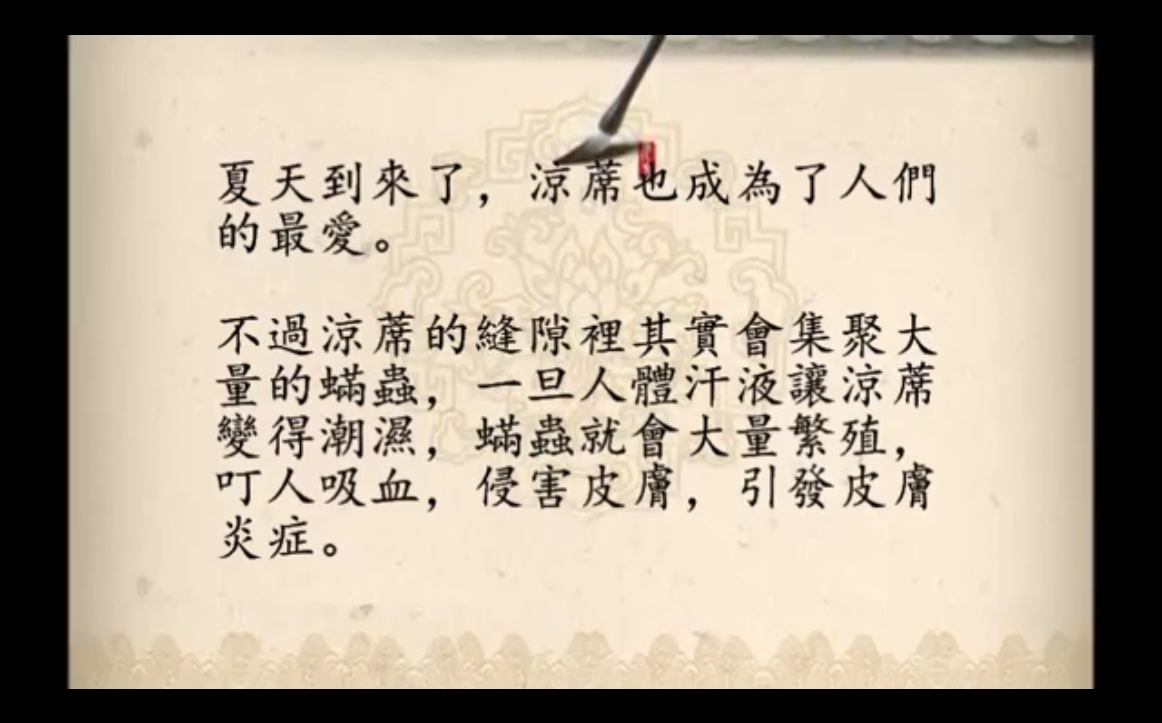 夏天到來了，涼蓆也成為了人們
的最愛。
不過涼蓆的縫隙裡其實會集聚大
量的蟎蟲，一旦人體汗液讓涼蓆
變得潮濕，蟎蟲就會大量繁殖，
叮人吸血，侵害皮膚，引發皮膚
炎症。